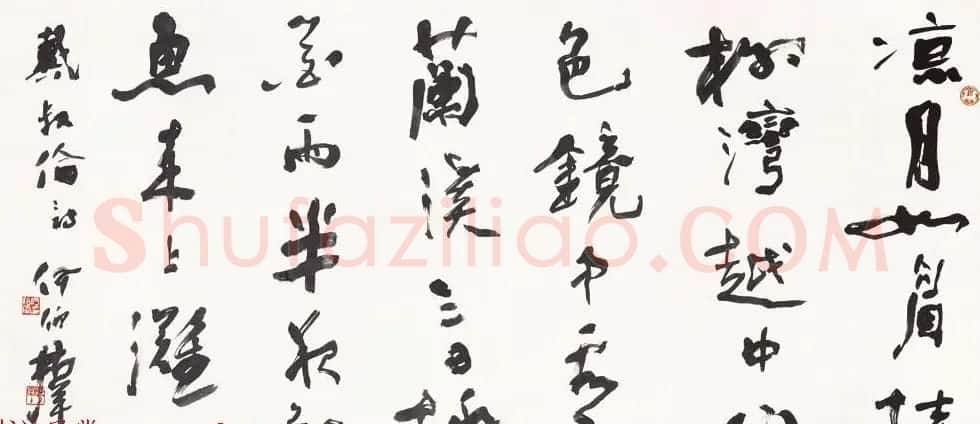 凉月如眉挂
柳灣越中山
色鏡中看
蘭溪三日桃
花雨半夜
魚来上灘
戴叔倫詩
Shufaziliao.COM